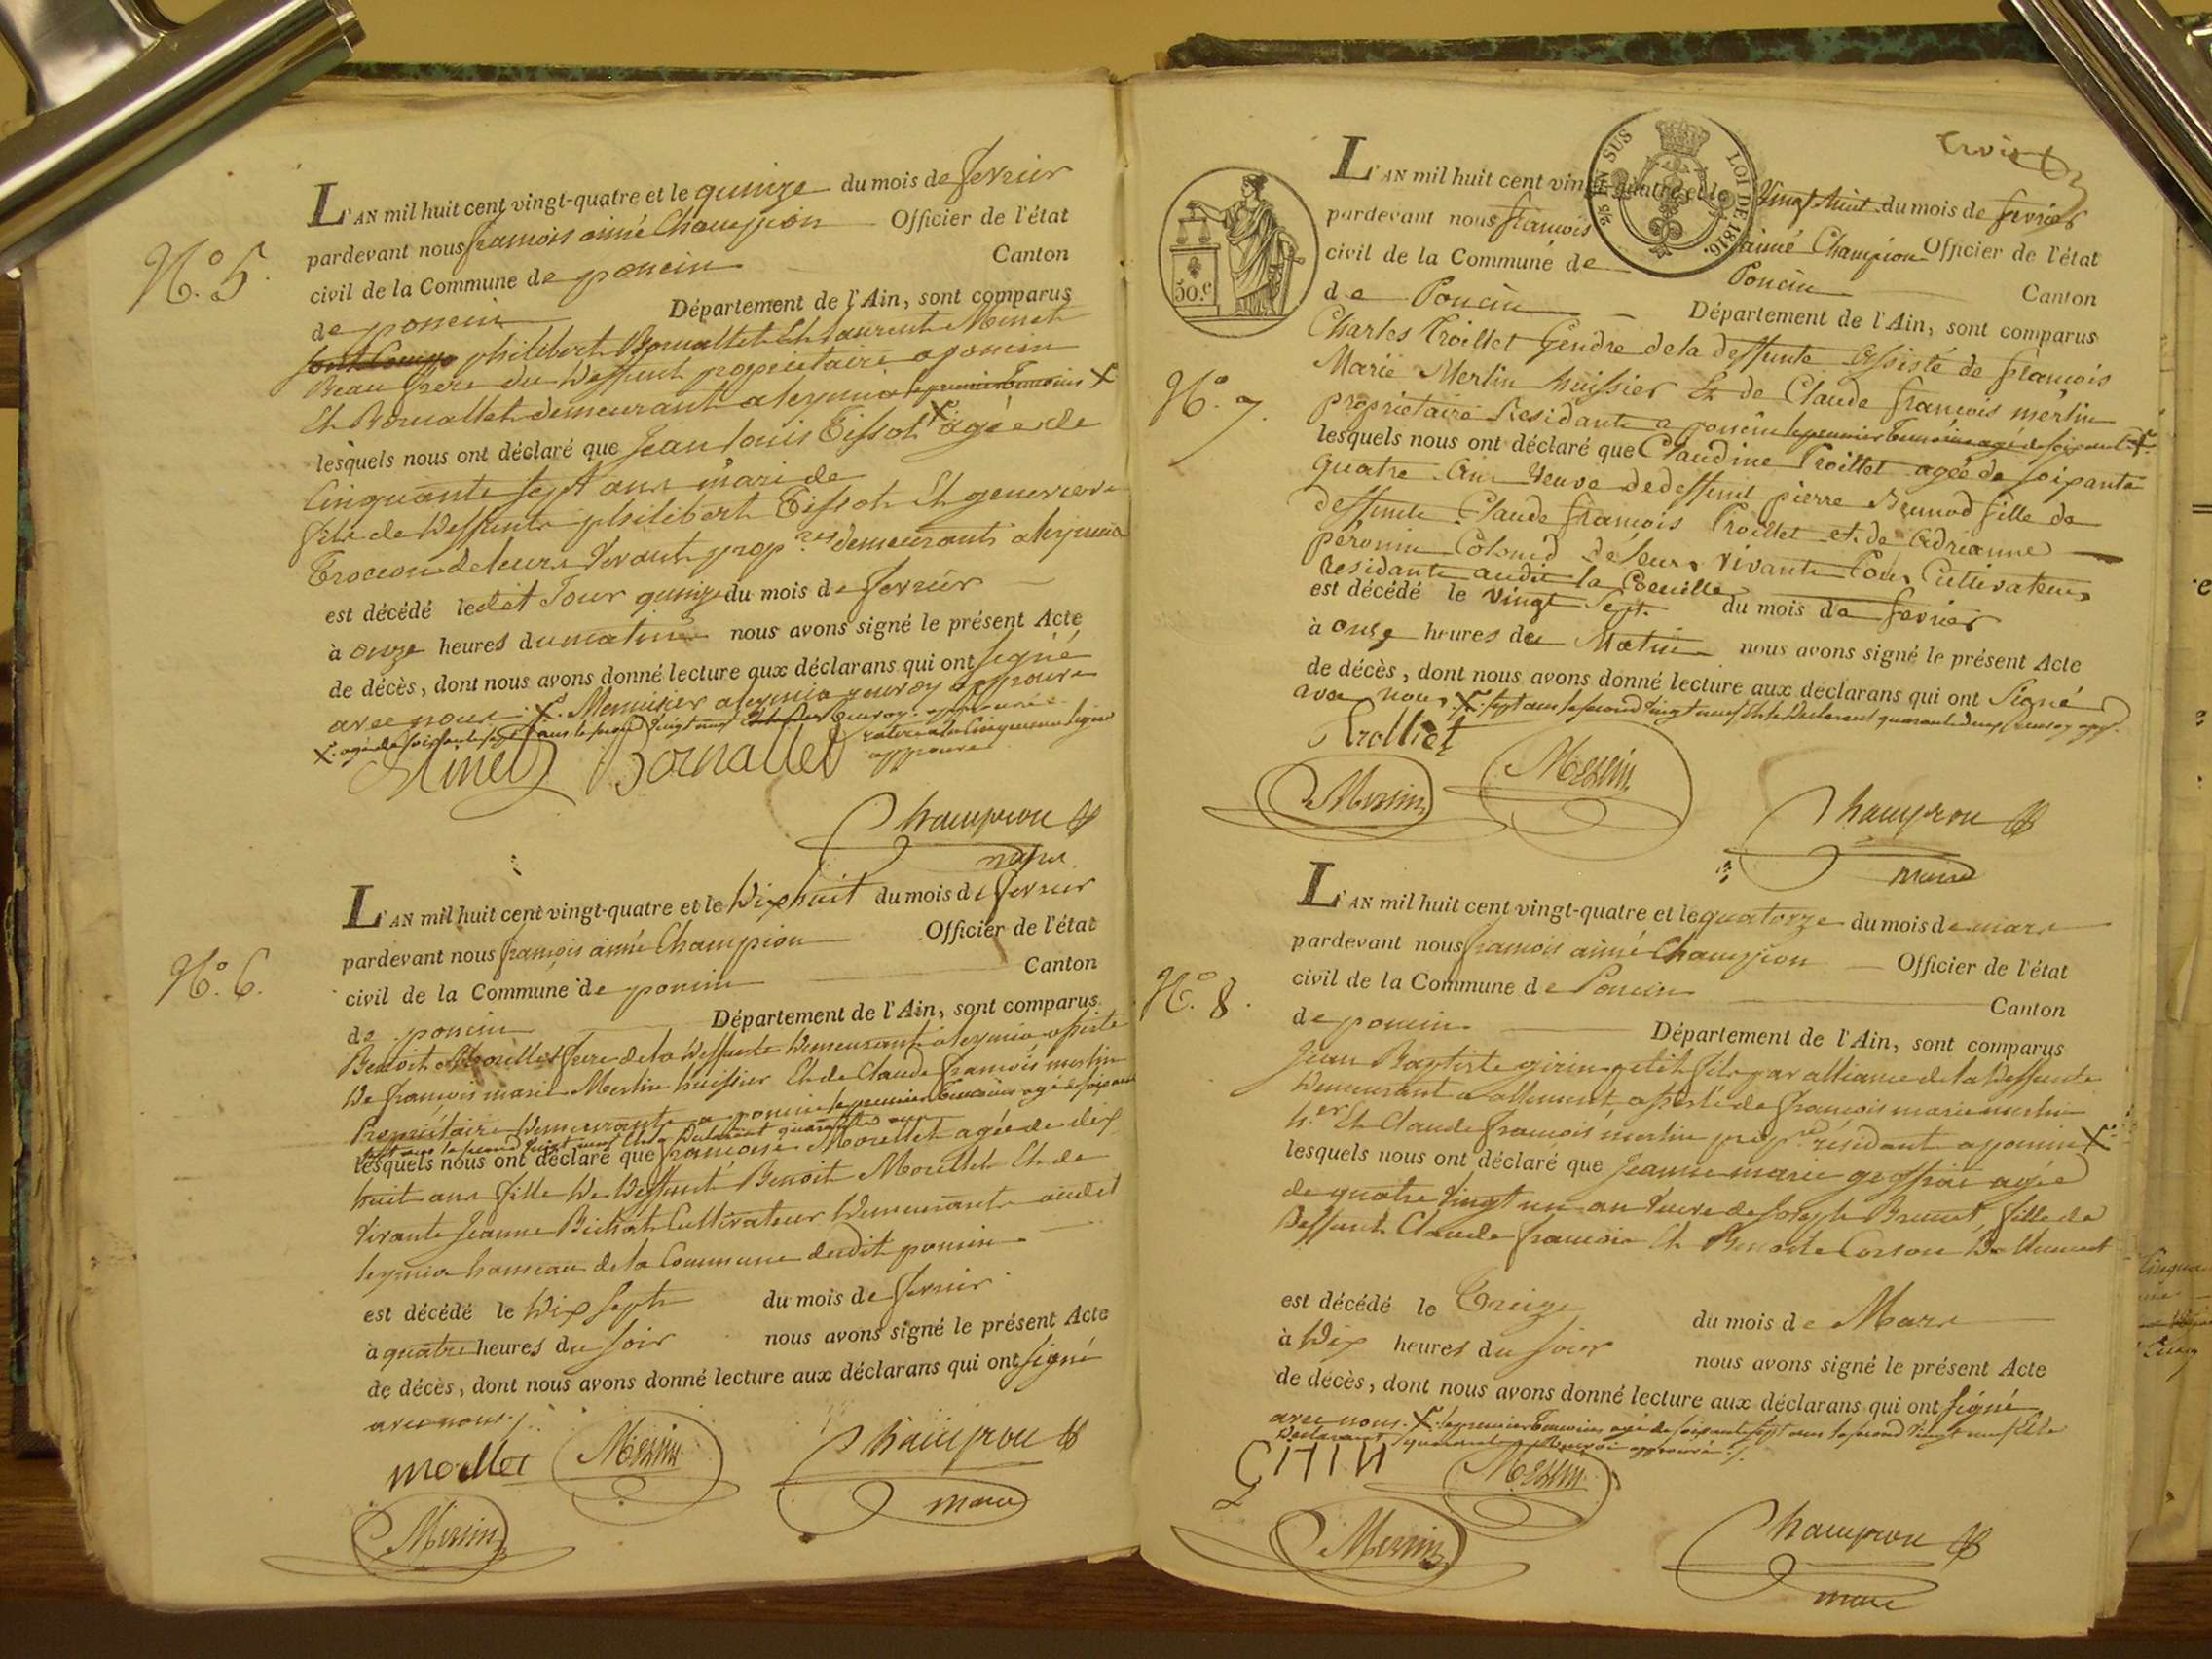 N.° 5.
L'AN mil huit cent vingt-quatre et le quinze du mois de fevrier
pardevant nous françois aimé Champion Officier de l'état
civil de la Commune de poncin Canton
de poncin Département de l'Ain, sont comparus
philibert Bornattet Et Laurent Minet
Beau frere du deffunt propriétaire a poncin
Et Bornallet demeurant a leymia le premier temoins X
lesquels nous ont déclaré que Jean Louis Tissot X agée de
Cinquante sept ans mari de
fils de deffunts philibert Tissot Et genevieve
Trocon de leurs vivant prop.res demeurants a leymia
est décédé le dit Jour quinze du mois de fevrier
à onze heures du matin nous avons signé le présent Acte
de décès, dont nous avons donné lecture aux déclarans qui ont signé
avec nous. X. Menuisier a leymia renvoy approuvé
X. agé de soissante sept ans le second vingt neuf renvoy approuvé
cinquieme ligne
approuvé
Minet Bornallet
Champion
maire
N.° 6.
L'AN mil huit cent vingt-quatre et le dix huit du mois de fevrier
pardevant nous françois aimé Champion Officier de l'état
civil de la Commune de poncin Canton
de poncin Département de l'Ain, sont comparus
Benoit Morellet frere de la deffunte demeurant a leymia assisté
de françois marie Merlin huissier Et de Claude françois merlin
Propriétaire demeurants a poncin le premier temoins agé de soixante
sept ans le second vingt neuf Et le declarant quarante ans
lesquels nous ont déclaré que françoise Morellet agée de dix
huit ans fille de deffunt Benoit Morellet Et de
vivante Jeanne Bichat Cultivateur demeurante audit
leymia hameau de la Commune dudit poncin
est décédé le dix sept du mois de fevrier
à quatre heures du soir nous avons signé le présent Acte
de décès, dont nous avons donné lecture aux déclarans qui ont signé
avec nous ./.
Morllet Merlin Champion
maire
Merlin
trois
3% EN SUS LOI DE 1816.
50.c
N.° 7.
L'AN mil huit cent vingt-quatre et le vingt huit du mois de fevrier
pardevant nous françois aimé Champion Officier de l'état
civil de la Commune de Poncin Canton
de Poncin Département de l'Ain, sont comparus
Charles Troillet Gendre de la deffunte assisté de françois
Marie Merlin huissier Et de Claude françois merlin
propriétaire Residants a poncin le premier temoins agé de soixante X
lesquels nous ont déclaré que Claudine Troillet agée de soixante
quatre ans veuve de deffunt pierre Brunod fille de
deffunts Claude françois Troillet et de Adrianne
péronne Colomb de leurs vivants Tous Cultivateurs
Residants audit la Coeuille
est décédé le vingt sept du mois de fevrier
à onze heures du Matin nous avons signé le présent Acte
de décès, dont nous avons donné lecture aux déclarans qui ont Signé
avec nous. X. sept ans le second vingt neuf Et le declarant quarante deux renvoy app.
Trolliet
Merlin Merlin
Champion
maire
N.° 8.
L'AN mil huit cent vingt-quatre et le quatorze du mois de mars
pardevant nous françois aimé Champion Officier de l'état
civil de la Commune de Poncin Canton
de poncin Département de l'Ain, sont comparus
Jean Baptiste girin petit fils par alliance de la deffunte
demeurant a allement, assisté de françois marie merlin
h.er Et Claude françois merlin prop.re résidant a poncin X
lesquels nous ont déclaré que Jeanne marie geoffrai agée
de quatre vingt un an veuve de Joseph Brunet, fille de
deffunts Claude françois Et Benoite Corson d'allement
est décédé le Treize du mois de Mars
à dix heures du soir nous avons signé le présent Acte
de décès, dont nous avons donné lecture aux déclarans qui ont signé
avec nous. X. le premier temoins agé de soixante sept ans le second vingt neuf Et le
declarant quarante renvoi approuvé ./.
Girin Merlin
Merlin Champion
maire